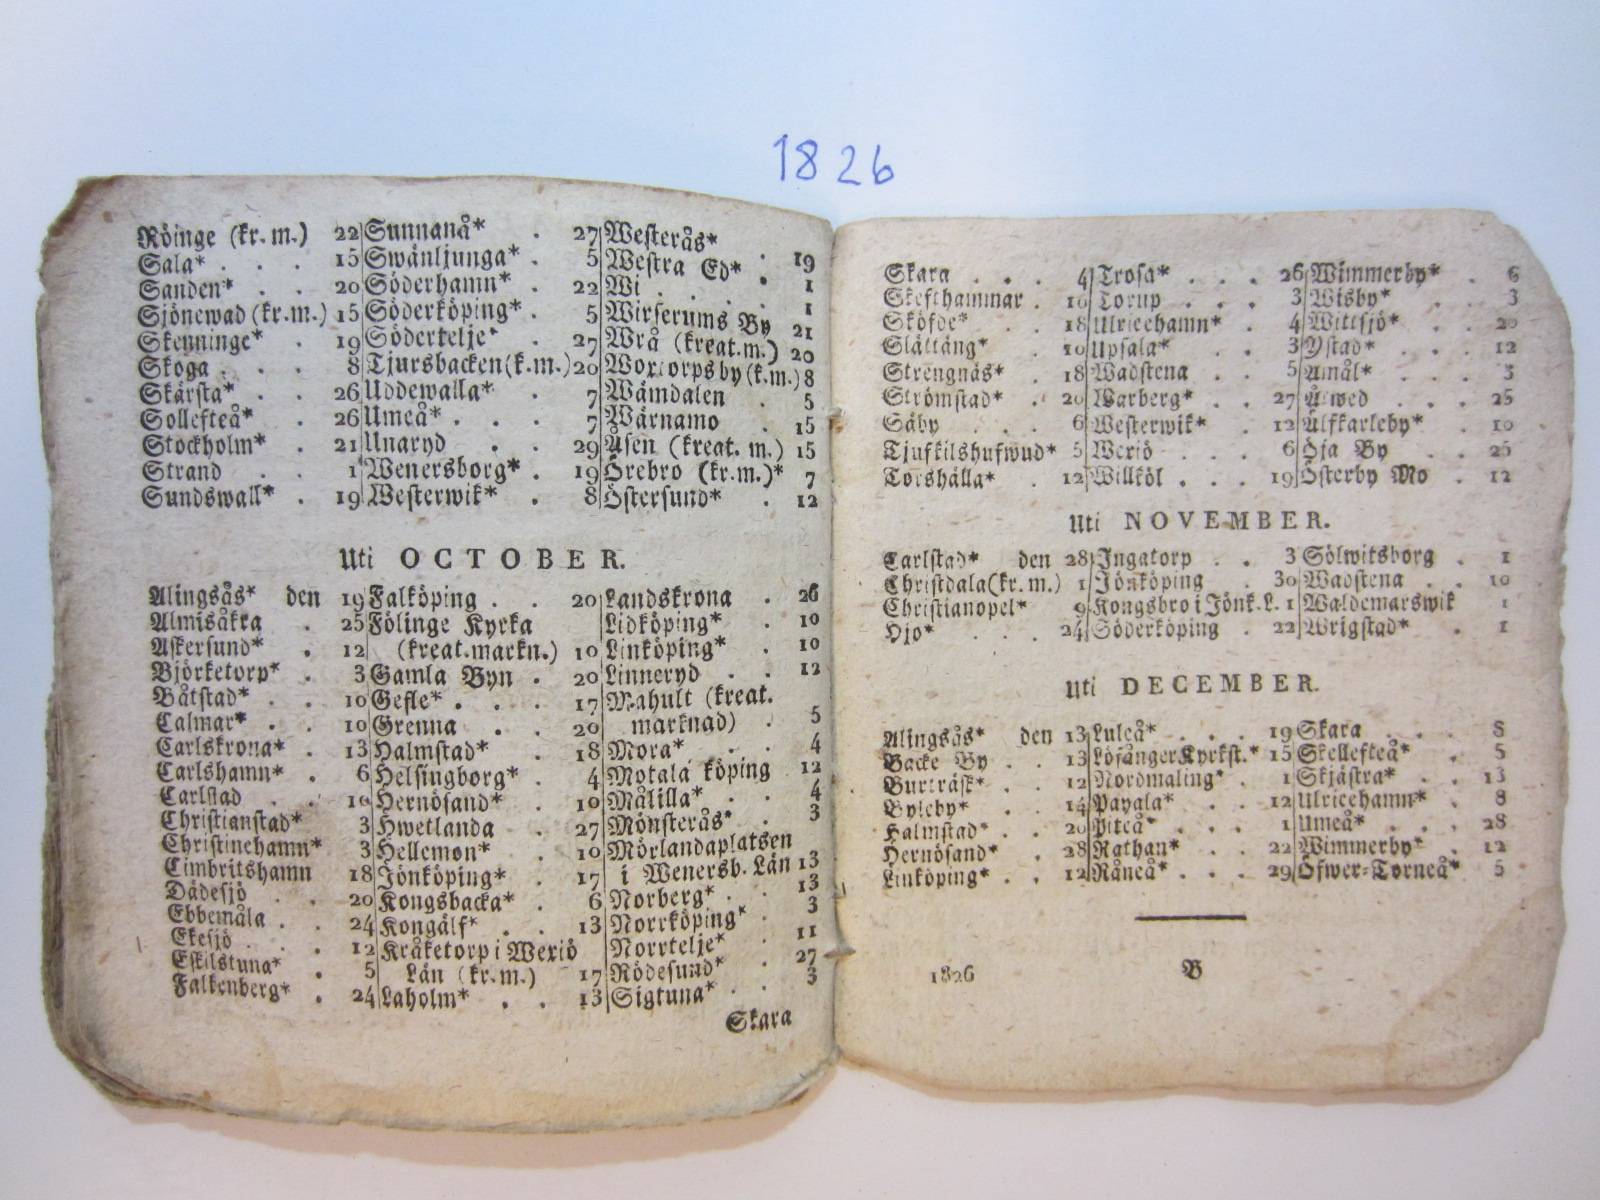 1826
Röinge (kr.m.) 22
Sala* . . . 15
Sanden* . . 20
Sjönewad (kr.m.) 15
Skenninge* . 19
Skoga . . . 8
Skärsta* . . 26
Sollefteå* . 26
Stockholm* . 21
Strand . . 1
Sundswall* . 19
Sunnanå* . 27
Swänljunga* . 5
Söderhamn* . 22
Söderköping* . 5
Södertelje* . 27
Tjursbacken (k.m.) 20
Uddewalla* . 7
Umeå* . . . 7
Unaryd . . 29
Wenersborg* . 19
Westerwik* . 8
Westerås* . 19
Westra Ed* . 1
Wi . . . . 1
Wirserums By 21
Wrå (kreat.m.) 20
Wortorpsby (k.m.) 8
Wämdalen . 5
Wärnamo . 15
Åsen (kreat. m.) 15
Örebro (kr.m.)* 7
Östersund* . 12
Uti OCTOBER.
Alingsås* den 19
Almisåkra . 25
Askersund* . 12
Björketorp* . 3
Båtstad* . . 10
Calmar* . . 10
Carlskrona* . 13
Carlshamn* . 6
Carlstad . . 10
Christianstad* 3
Christinehamn* 3
Cimbritshamn 18
Dädesjö . . 20
Ebbemåla . . 24
Ekesjö . . . 12
Eskilstuna* . 5
Falkenberg* . 24
Falköping . . 20
Fölinge Kyrka
(kreat.markn.) 10
Gamla Byn . 20
Gefle* . . . 17
Grenna . . 20
Halmstad* . 18
Helsingborg* . 4
Hernösand* . 10
Hwetlanda . 27
Hellemon* . 10
Jönköping* . 17
Kongsbacka* . 6
Kongälf* . . 13
Kråketorp i Wexiö
Län (kr.m.) 17
Laholm* . . 13
Landskrona . 26
Lidköping* . 10
Linköping* . 10
Linneryd . . 12
Mahult (kreat.
marknad) . 5
Mora* . . 4
Motala köping 12
Målilla* . . 4
Mönsterås* . 3
Mörlandaplatsen
i Wenersb. Län 13
Norberg* . . 13
Norrköping* . 3
Norrtelje* . 11
Rödesund* . 27
Sigtuna* . . 3
Skara
Skara . . . 4
Skefthammar . 10
Sköfde* . . 18
Slättäng* . . 10
Strengnäs* . 18
Strömstad* . 20
Säby . . . 6
Tjufkilshufwud* 5
Torshälla* . 12
Trosa* . . . 26
Torup . . . 3
Ulricehamn* . 4
Upsala* . . 3
Wadstena . . 5
Warberg* . . 27
Westerwik* . 12
Wexiö . . . 6
Willköl . . . 19
Wimmerby* . 6
Wisby* . . 3
Wittsjö* . . 20
Ystad* . . . 12
Åmål* . . . 3
Älfkarleby* . 10
Öja By . . 25
Österby Mo . 12
Uti NOVEMBER.
Carlstad* den 28
Christdala (kr.m.) 1
Christianopel* 9
Hjo* . . . 24
Ingatorp . . 3
Jönköping . 30
Kongsbro i Jönk.L. 1
Söderköping . 22
Sölwitsborg . 1
Wadstena . . 10
Waldemarswik 1
Wrigstad* . 1
Uti DECEMBER.
Alingsås* den 13
Backe By . . 13
Burträsk* . . 12
Byleby* . . 14
Halmstad* . 20
Hernösand* . 28
Linköping* . . 12
Luleå* . . . 19
Löfånger Kyrkst.* 15
Nordmaling* . 1
Payala* . . 12
Piteå* . . . 1
Rathan* . . 22
Råneå* . . . 29
Skara . . . 8
Skellefteå* . 5
Skjästra* . . 13
Ulricehamn* . 8
Umeå* . . . 28
Wimmerby* . 12
Öfwer-Torneå* 5
1826 B